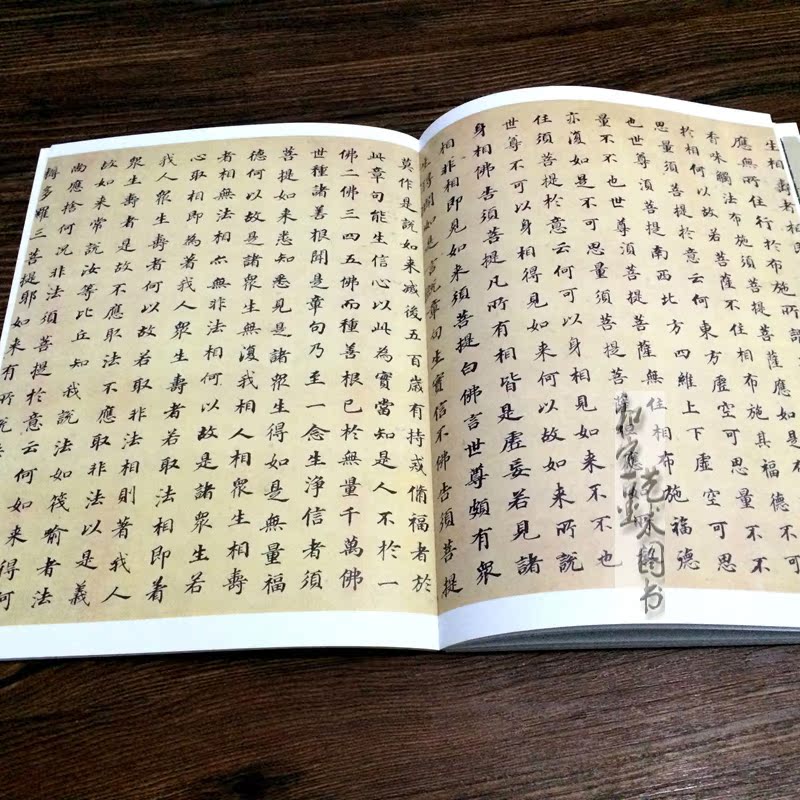 生相壽者相
應無所住行於布施所謂
香味觸法布施須菩提菩薩應如是布
於相何以故若菩薩不住相布施其福德不可
思量須菩提於意云何東方虛空可思量不不
也世尊須菩提南西北方四維上下虛空可思
量不不也世尊須菩提菩薩無住相布施福德
亦復如是不可思量須菩提菩薩但應
住須菩提於意云何可以身相見如来不不也
世尊不可以身相得見如来何以故如来所說
身相佛告須菩提凡所有相皆是虛妄若見諸
相非相即見如来須菩提白佛言世尊頗有衆
生得聞如是言說章句生實信不佛告須菩提
莫作是說如来滅後五百歲有持戒脩福者於
此章句能生信心以此為實當知是人不於一
佛二佛三四五佛而種善根已於無量千萬佛
世種諸善根聞是章句乃至一念生淨信者須
菩提如来悉知悉見是諸衆生得如是無量福
德何以故是諸衆生無復我相人相衆生相壽
者相無法相亦無非法相何以故是諸衆生若
心取相即為著我人衆生壽者若取法相即著
我人衆生壽者何以故若取非法相則著我人
衆生壽者是故不應取法不應取非法以是義
故如来常說汝等比丘知我說法如筏喻者法
尚應捨何況非法須菩提於意云何如来得阿
耨多羅三菩提耶如来有所說
艺术图书